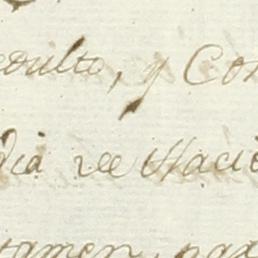 oculto, y Con
dia de Haci
tamen, par